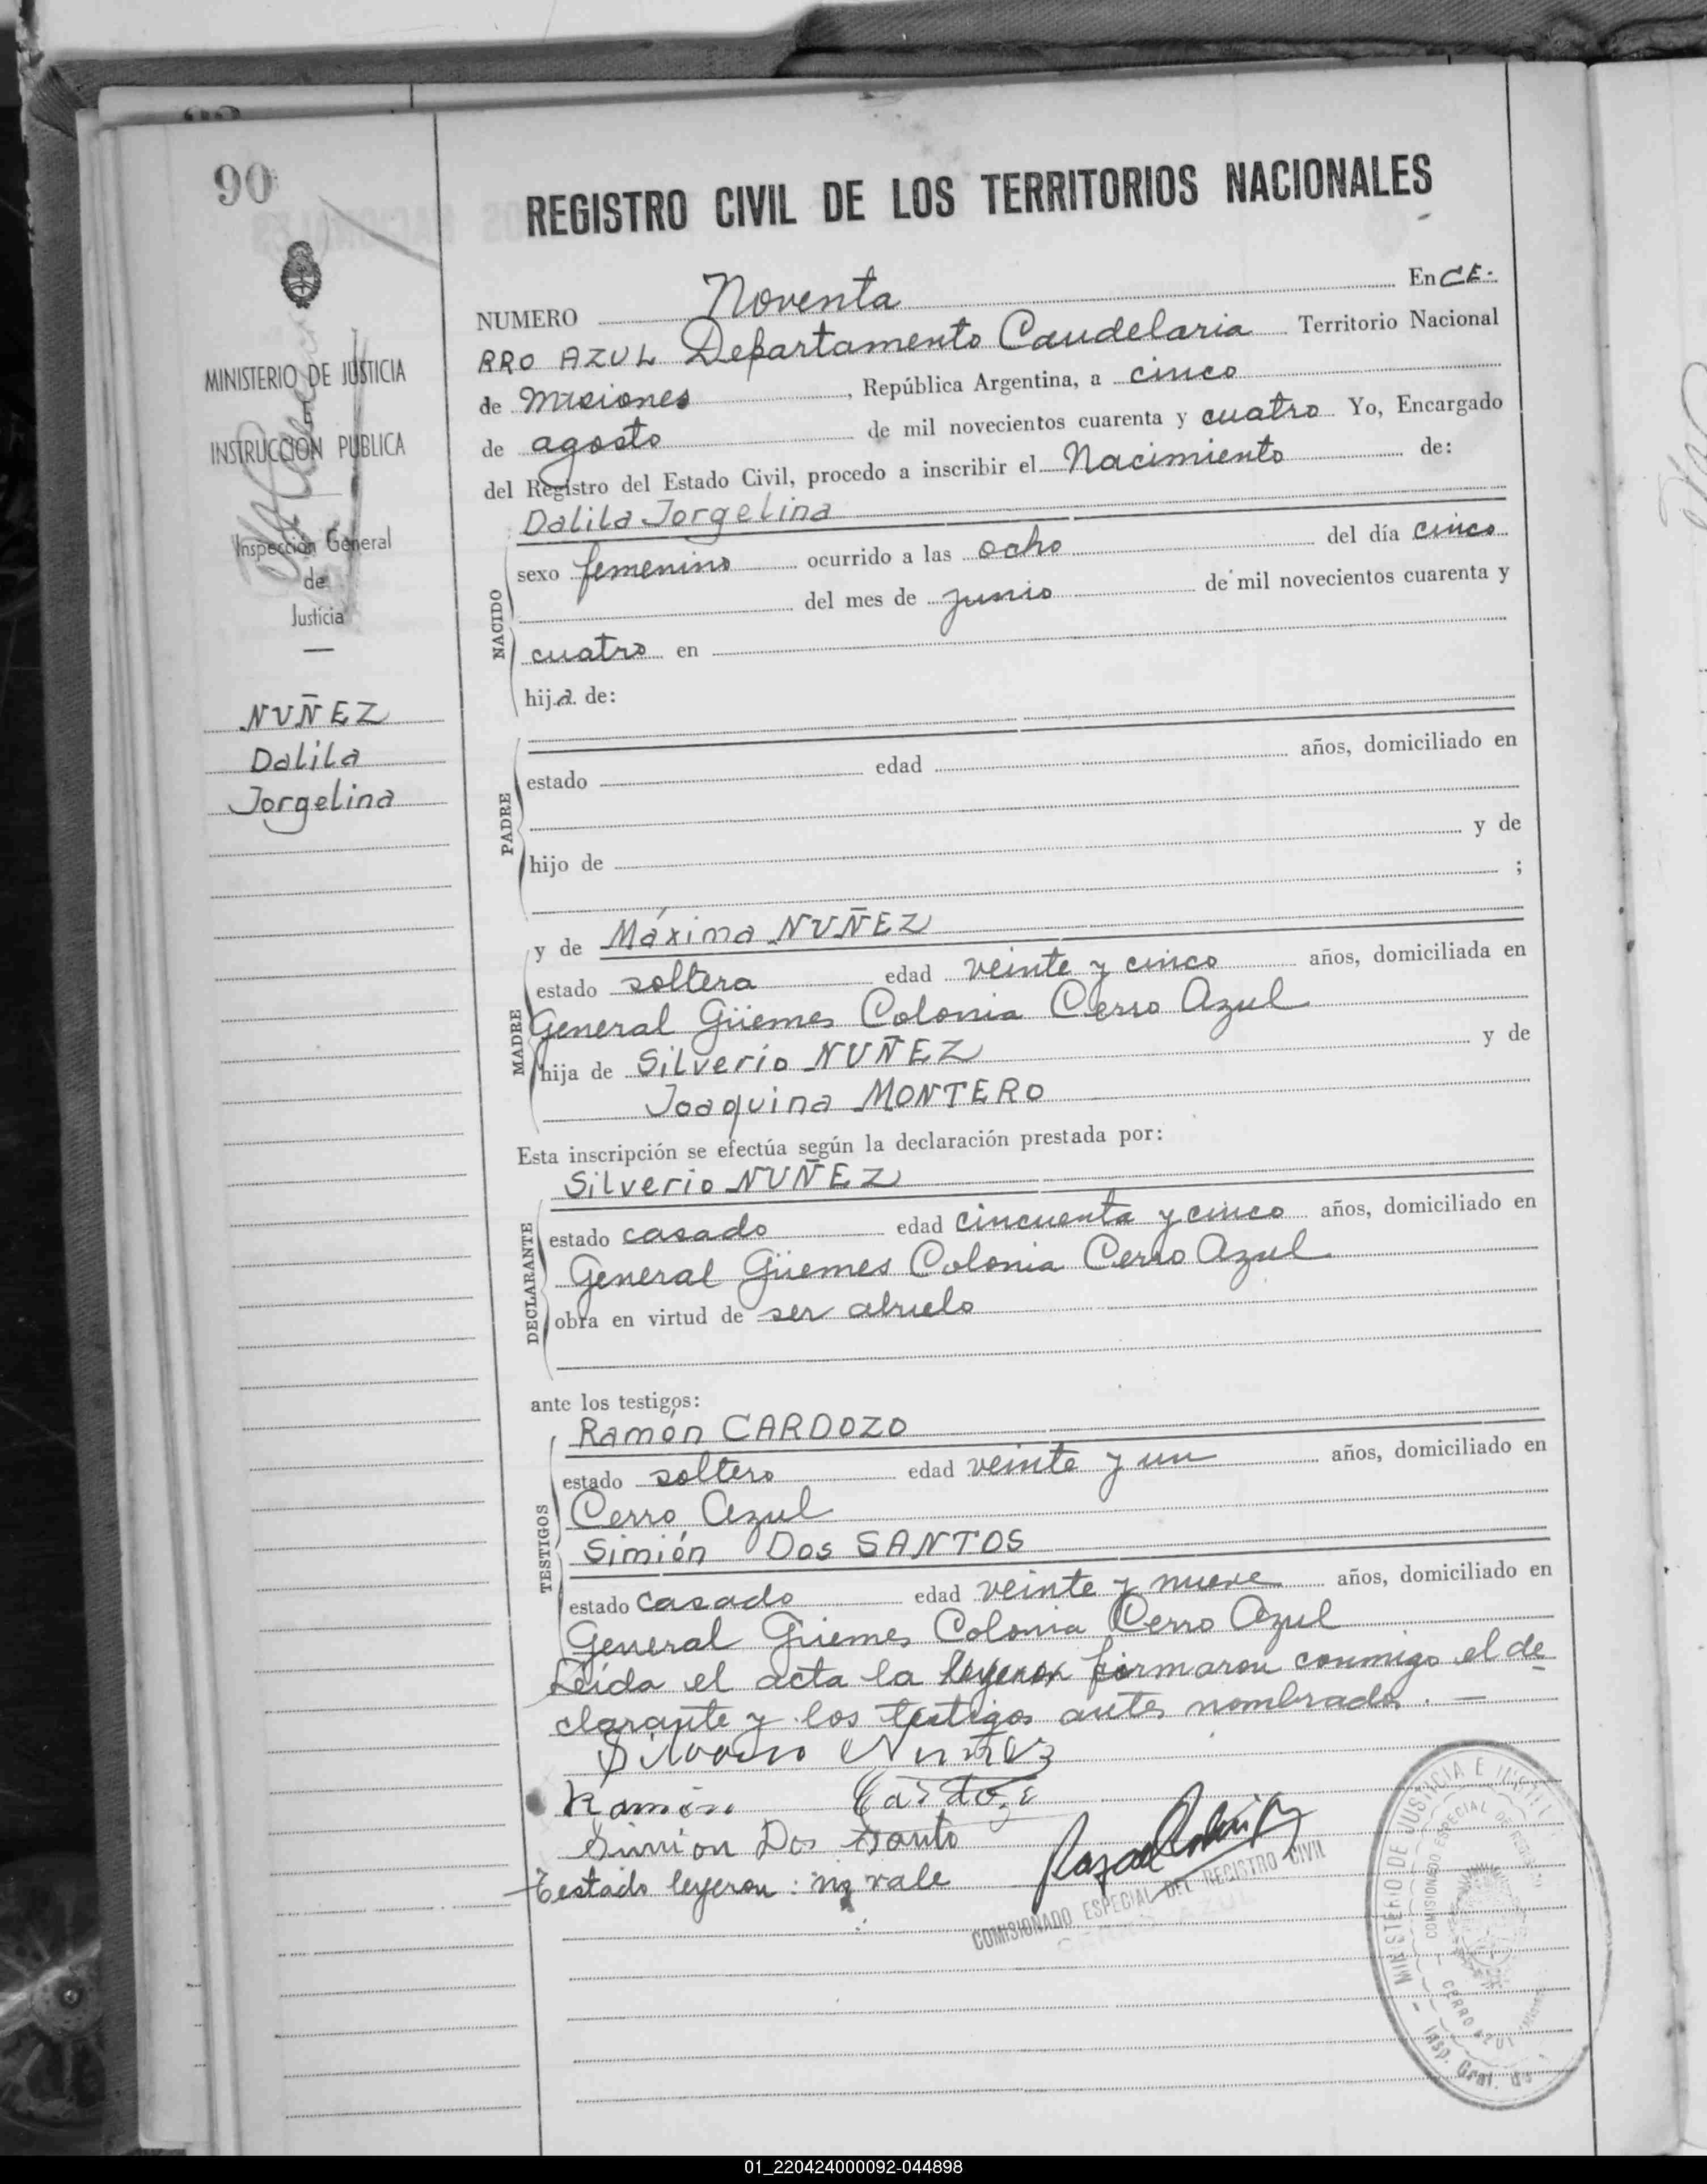 90
REGISTRO CIVIL DE LOS TERRITORIOS NACIONALES
MINISTERIO DE JUSTICIA
E
INSTRUCCIÓN PUBLICA
Inspección General
de
Justicia
NUÑEZ
Dalila
Jorgelina
NUMERO Noventa En CE-
RRO AZUL Departamento Candelaria Territorio Nacional
de Misiones, República Argentina, a cinco
de agosto de mil novecientos cuarenta y cuatro Yo, Encargado
del Registro del Estado Civil, procedo a inscribir el Nacimiento de:
NACIDO
Dalila Jorgelina
sexo femenino ocurrido a las ocho del día cinco
del mes de junio de mil novecientos cuarenta y
cuatro en
hija de:
PADRE
estado edad años, domiciliado en
hijo de y de
;
MADRE
y de Máxima NUÑEZ
estado soltera edad veinte y cinco años, domiciliada en
General Güemes Colonia Cerro Azul
hija de Silverio NUÑEZ y de
Joaquina MONTERO
Esta inscripción se efectúa según la declaración prestada por:
DECLARANTE
Silverio NUÑEZ
estado casado edad cincuenta y cinco años, domiciliado en
General Güemes Colonia Cerro Azul
obra en virtud de ser abuelo
ante los testigos:
TESTIGOS
Ramón CARDOZO
estado soltero edad veinte y un años, domiciliado en
Cerro Azul
Simión Dos SANTOS
estado casado edad veinte y nueve años, domiciliado en
General Güemes Colonia Cerro Azul
Leída el acta la leyeron firmaron conmigo el de
clarante y los testigos antes nombrados. —
Silverio Nuñez
Ramón Cardozo
Simion Dos Santo
Testado leyeron: no vale
COMISIONADO ESPECIAL DEL REGISTRO CIVIL
CERRO AZUL
MINISTERIO DE JUSTICIA E
COMISIONADO ESPECIAL DE
CERRO AZUL
Insp. Gral. de
01_220424000092-044898